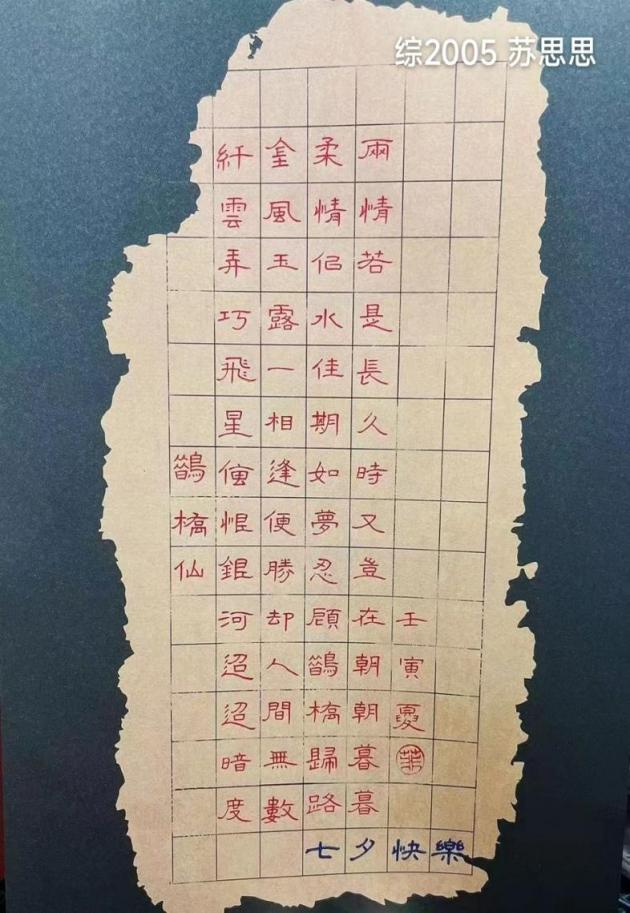 综2005 苏思思
鵲橋仙
纤雲弄巧飛星傳恨銀河迢迢暗度
金風玉露一相逢便勝却人間無數
柔情佀水佳期如夢忍顧鵲橋歸路
兩情若是長久時又豈在朝朝暮暮
壬寅夏
七夕快樂